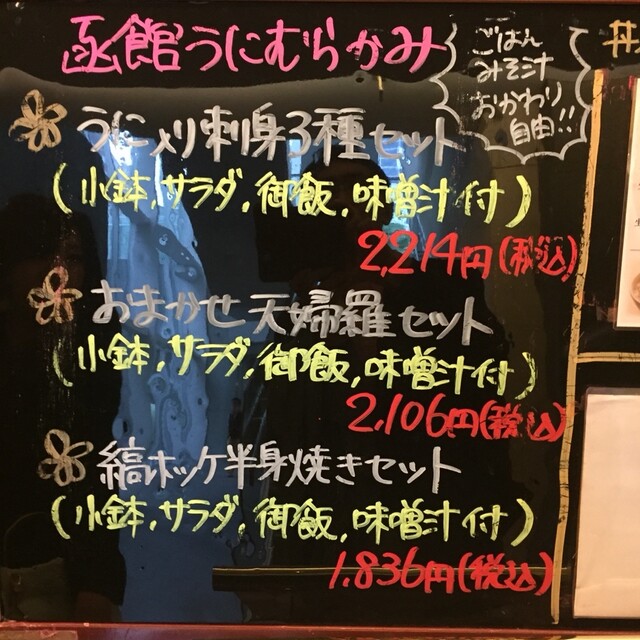 函館うにむらかみ
ごはん
みそ汁
おかわり
自由!!
丼
うに入り刺身3種セット
(小鉢,サラダ,御飯,味噌汁付)
2,214円(税込)
おまかせ天婦羅セット
(小鉢,サラダ,御飯,味噌汁付)
2,106円(税込)
縞ホッケ半身焼きセット
(小鉢,サラダ,御飯,味噌汁付)
1,836円(税込)